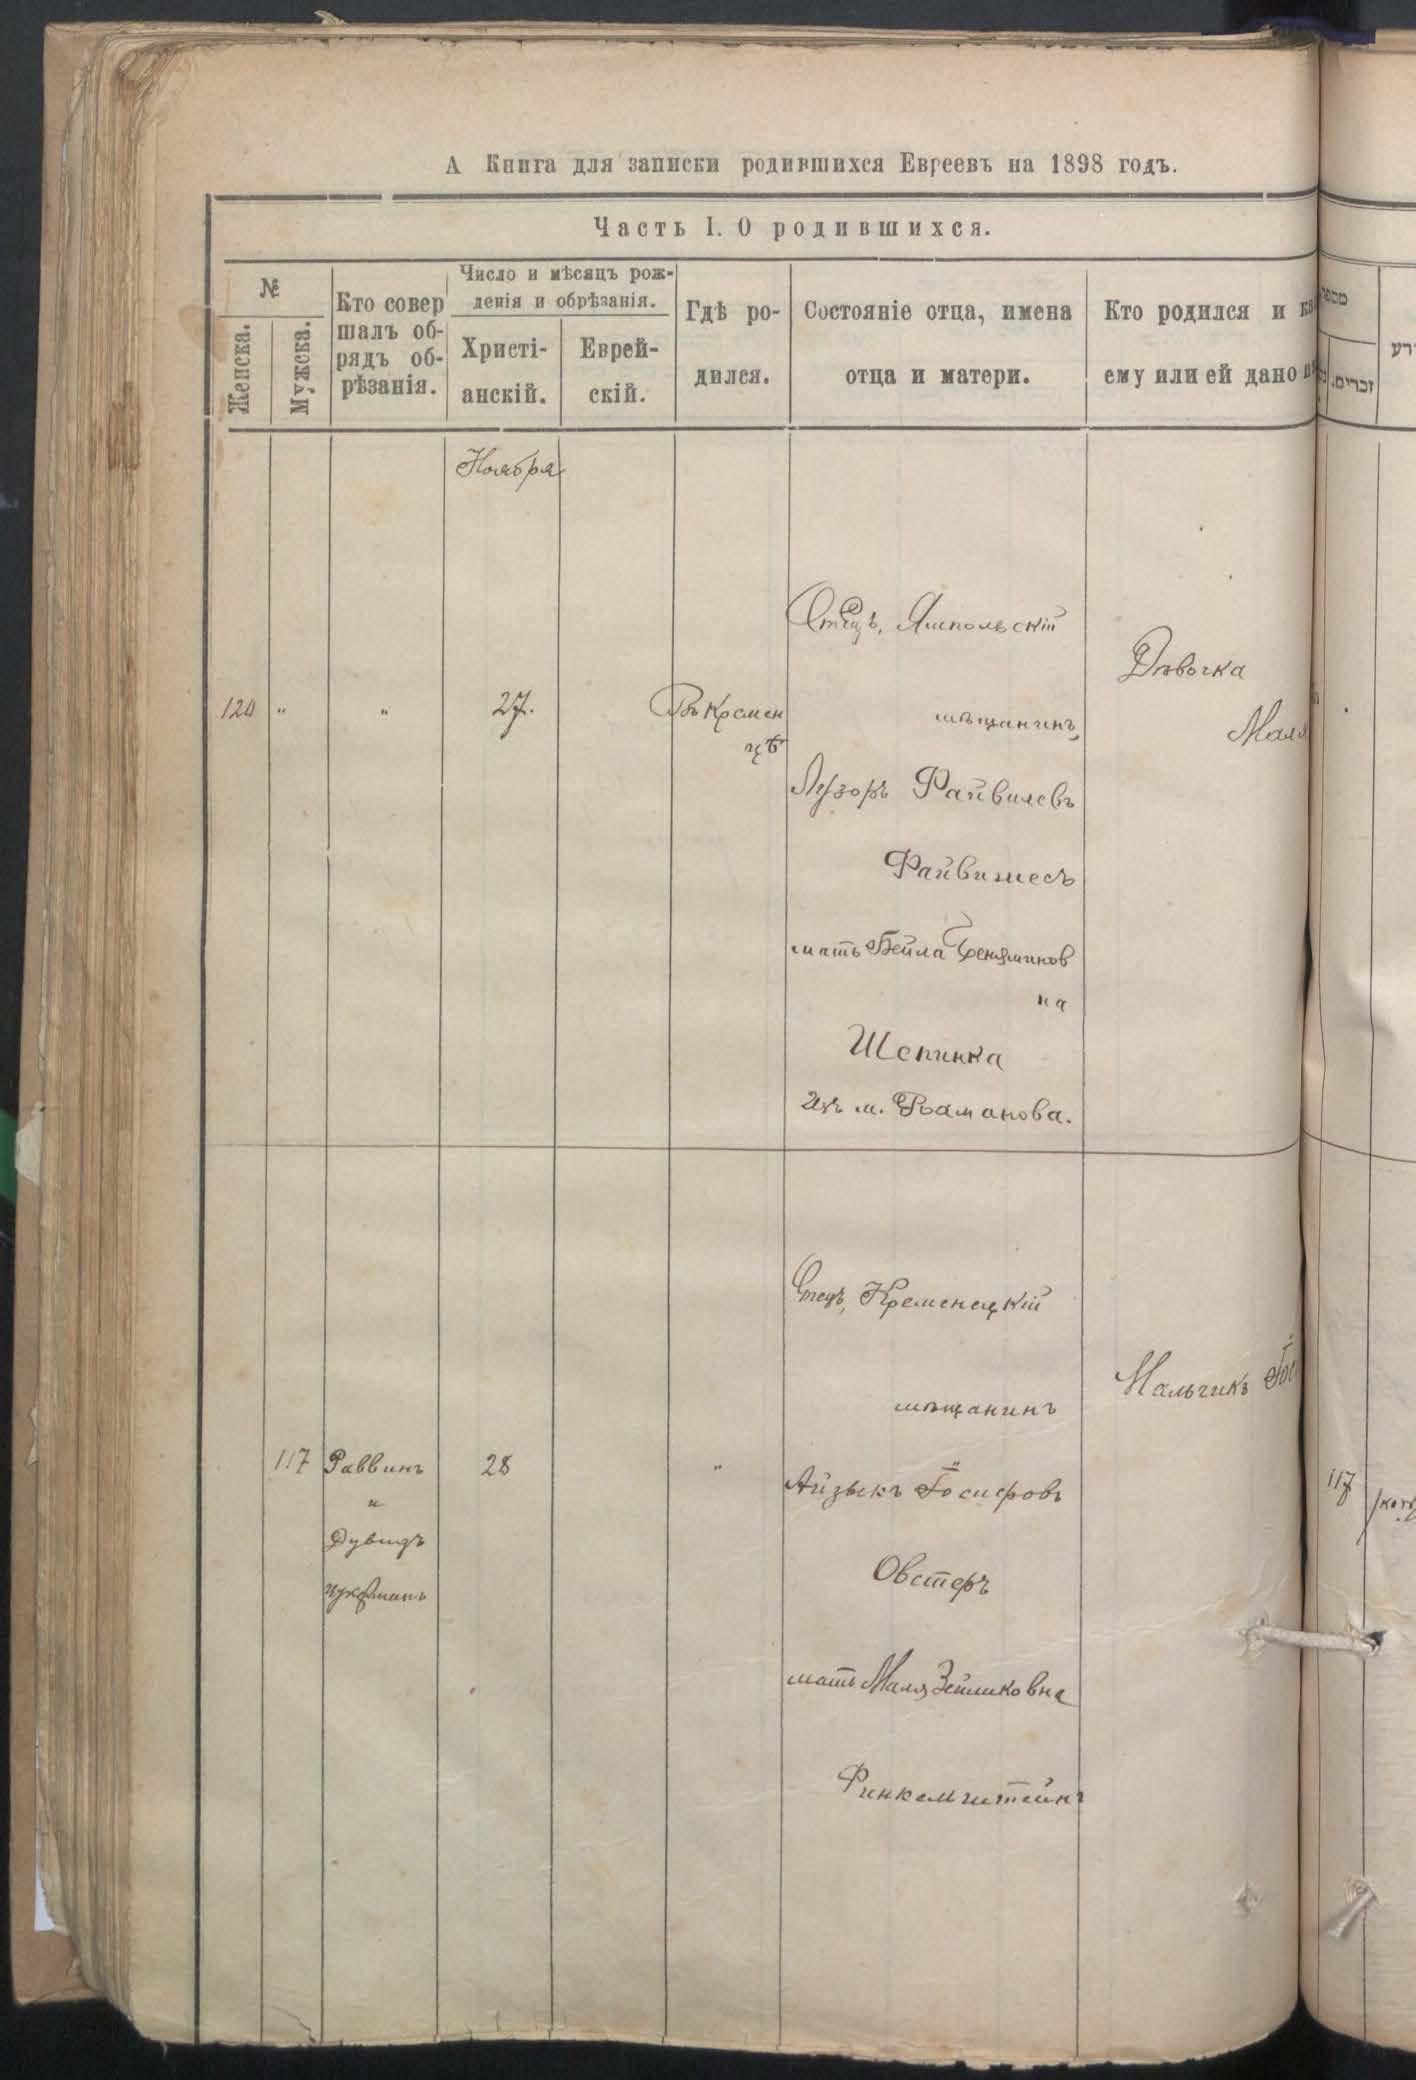 А Книга для записки родившихся Евреевъ на 1898 годъ.
Часть I. О родившихся.
№
Женска.
Мужска.
Кто совер
шалъ об-
рядъ об-
рѣзанія.
Число и мѣсяцъ рож-
денія и обрѣзанія.
Христі-
анскій.
Еврей-
скій.
Гдѣ ро-
дился.
Состояніе отца, имена
отца и матери.
Кто родился и
ему или ей дано
זכרים.
Ноября
120 " " 27.
Въ Кремен
цѣ
Отецъ, Ямпольскій
мѣщанинъ,
Лузоръ Файвилевъ
Файвишесъ
мать Бейла
на
Шепинка
изъ м. Романова.
Дѣвочка
Маля
117
Раввинъ
и
Дувидъ
28 "
Отецъ, Кременецкій
мѣщанинъ
Айзыкъ Іосифовъ
Овстеръ
мать Маля Зейликовна
Финкельштейнъ
Мальчикъ
117